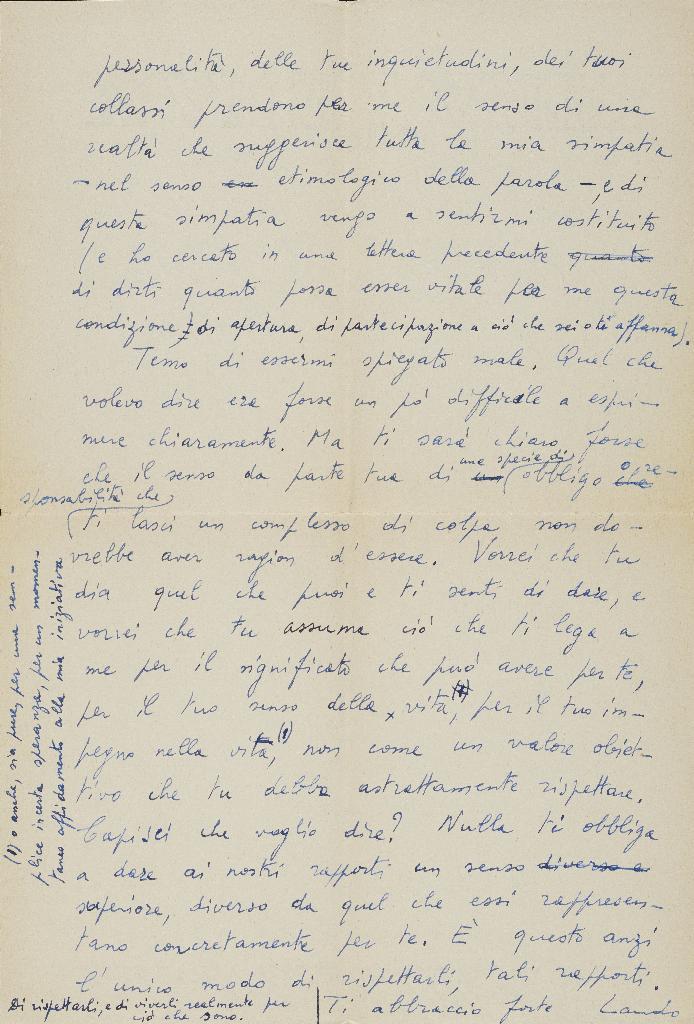 personalità, delle tue inquietudini, dei tuoi
collassi prendono per me il senso di una
realtà che suggerisce tutta la mia simpatia
– nel senso etimologico della parola –, e di
questa simpatia vengo a sentirmi costituito
(e ho cercato in una lettera precedente quanto
di dirti quanto possa esser vitale per me questa
condizione di apertura, di partecipazione a ciò che sei o ti affanna).
Temo di essermi spiegato male. Quel che
volevo dire era forse un pó difficile a espri-
mere chiaramente. Ma ti sarà chiaro forse
che il senso da parte tua di una specie di obbligo o re-
sponsabilità che
ti lasci un complesso di colpa non do-
vrebbe aver ragion d'essere. Vorrei che tu
dia quel che puoi e ti senti di dare, e
vorrei che tu assuma ciò che ti lega a
me per il significato che può avere per te,
per il tuo senso della vita, per il tuo im-
pegno nella vita, (1) non come un valore obiet-
tivo che tu debba astrattamente rispettare.
Capisci che voglio dire? Nulla ti obbliga
a dare ai nostri rapporti un senso diverso e
superiore, diverso da quel che essi rappresen-
tano concretamente per te. È questo anzi
l'unico modo di rispettarli, tali rapporti.
Di rispettarli, e di viverli realmente per
ciò che sono.
Ti abbraccio forte Lando
(1) o anche, sia pure, per una sem-
plice incerta speranza, per un momen-
taneo affidamento alla mia iniziativa